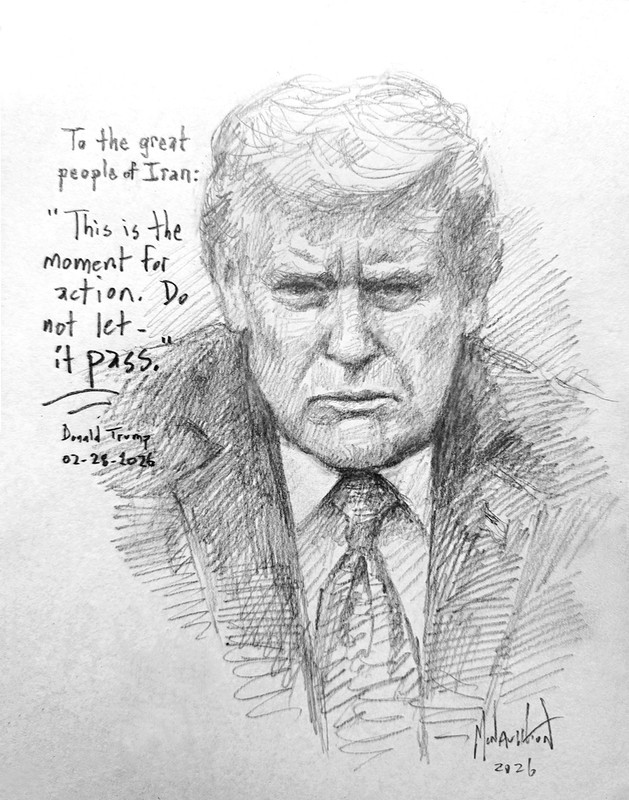 To the great
people of Iran:
"This is the
moment for
action. Do
not let -
it pass."
Donald Trump
02-28-2026
2026